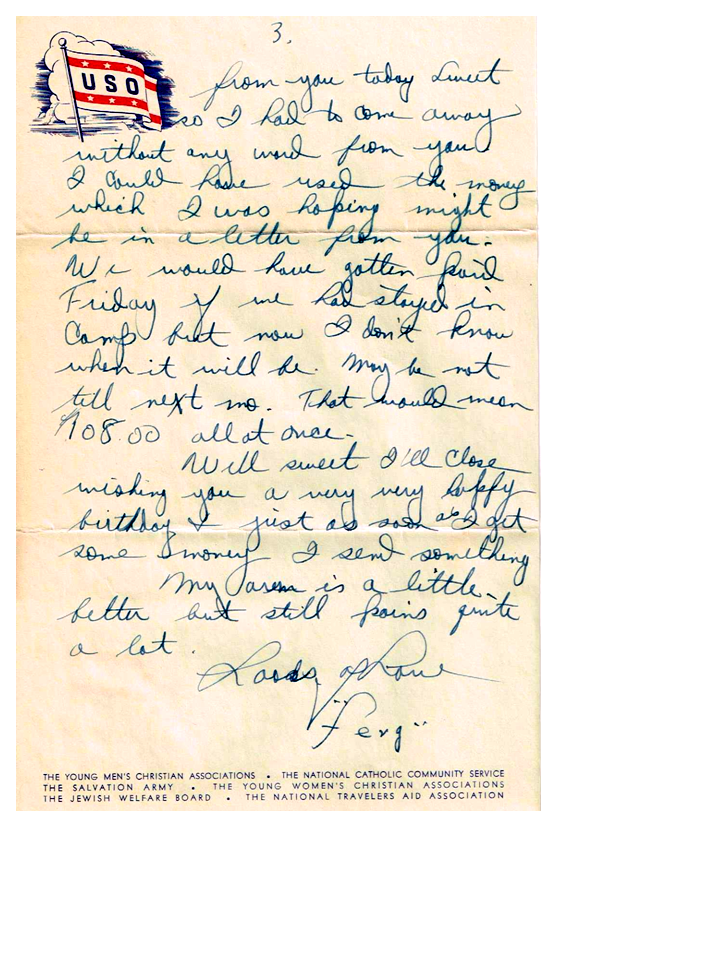 3.
USO
from you today Sweet
so I had to come away
without any word from you
I could have used the money
which I was hoping might
be in a letter from you.
We would have gotten paid
Friday if we had stayed in
Camp but now I don't know
when it will be. May be not
till next mo. That would mean
$108.00 all at once.
Well sweet I'll close
wishing you a very very happy
birthday & just as soon as I get
some money I send something
My arm is a little
better but still pains quite
a lot.
Loads of Love
"Ferg"
THE YOUNG MEN'S CHRISTIAN ASSOCIATIONS • THE NATIONAL CATHOLIC COMMUNITY SERVICE
THE SALVATION ARMY • THE YOUNG WOMEN'S CHRISTIAN ASSOCIATIONS
THE JEWISH WELFARE BOARD • THE NATIONAL TRAVELERS AID ASSOCIATION